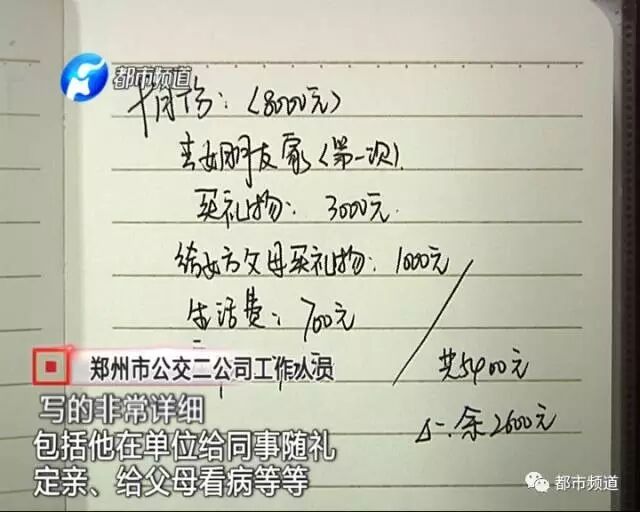 都市频道
十月份：（8000元）
去女朋友家（第一次）.
买礼物：3000元.
给女方父母买礼物：1000元
生活费：700元
共5400元
△：余2600元
郑州市公交二公司工作人员
写的非常详细
包括他在单位给同事随礼
定亲、给父母看病等等
都市频道